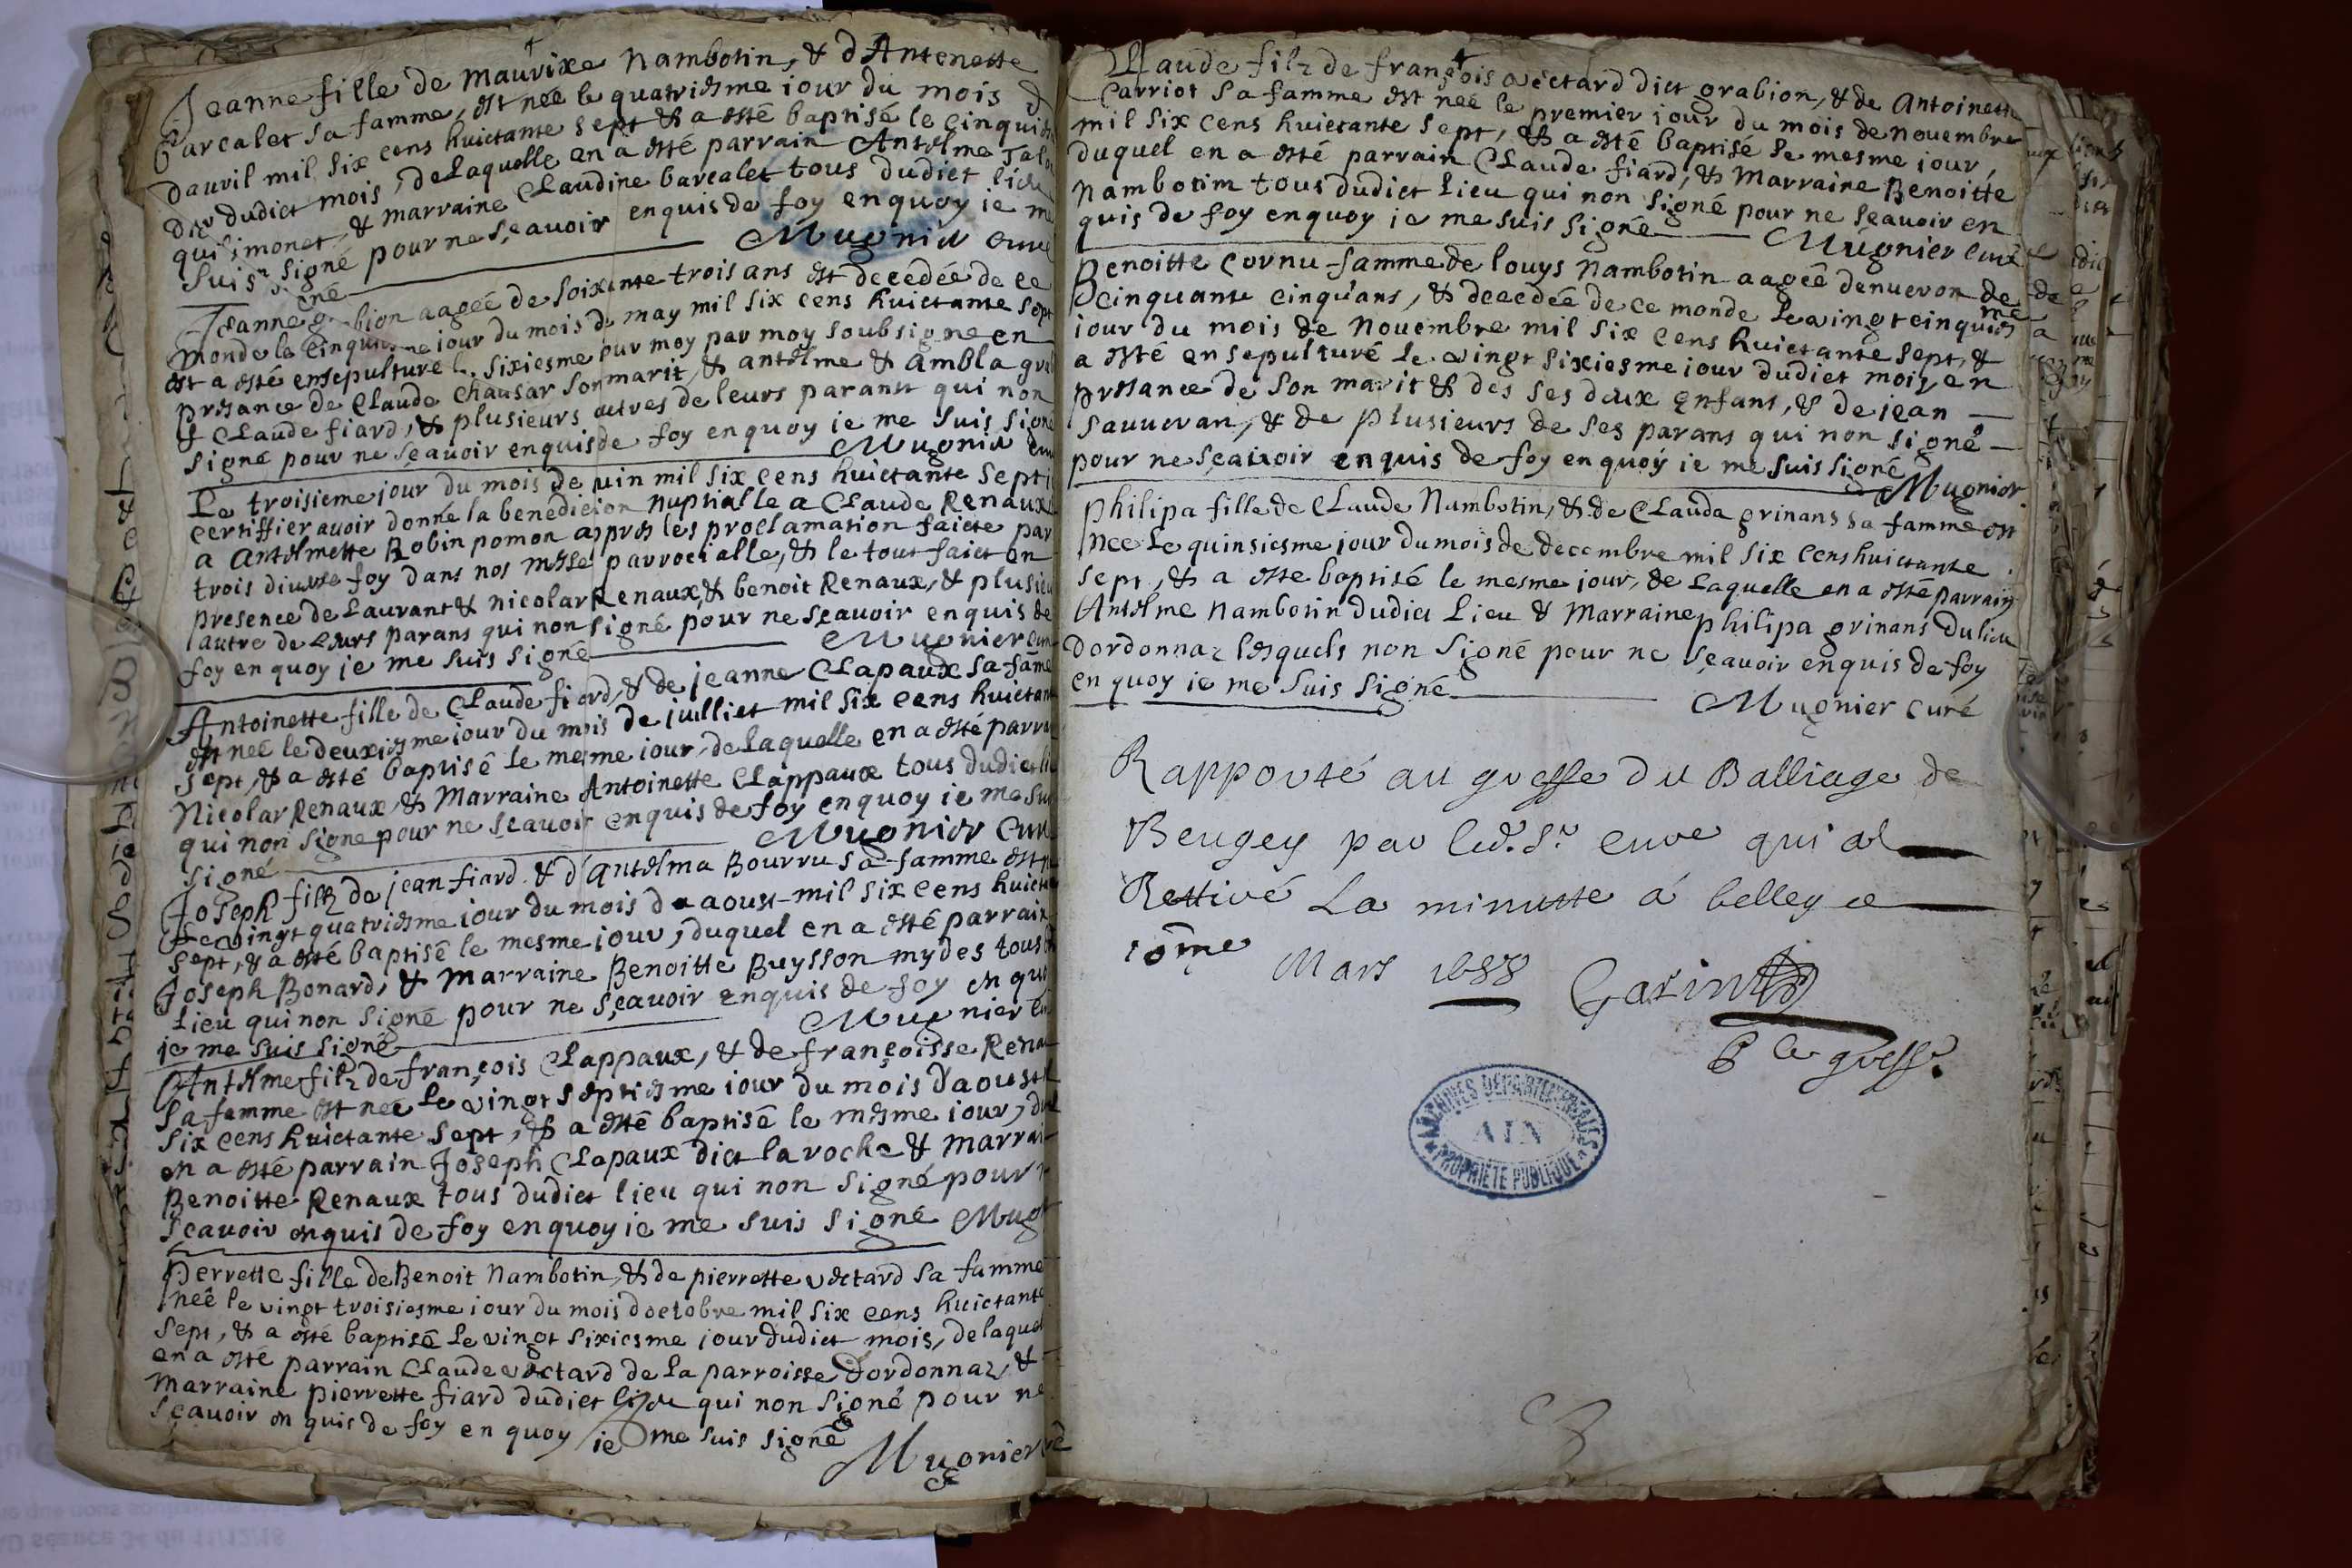 Jeanne fille de maurixe Nambotin, & d'Antenette
Carcalet sa famme, est née le quatriesme iour du mois
dauril mil six cens huictante sept & a esté baptisé le cinquies
dudict mois, de laquelle en a esté parrain Antelme
qui simonet, & marraine Claudine barcalet tous dudict lieu
signé pour ne sçauoir enquis de foy enquoy ie me
suis Mugnier curé
Jeanne aagée de soixente trois ans est decedée de ce
monde le cinquiesme iour du mois de may mil six cens huictante sept
est a esté ensepulturé le sixiesme pur moy par moy soubsigne en
presance de Claude Chausar son marit, & antelme & Ambla
& Claude fiard, & plusieurs autres de leurs parant qui non
signé pour ne sçauoir enquis de foy enquoy ie me suis signé
Mugnier
Le troisieme jour du mois de iuin mil six cens huictante sept
certiffier auoir donné la benediction nuptialle a Claude Renaux
a Antelmette Robin pomon appres les proclamation faicte par
trois diuerse foy dans nos messe parrocialle, & le tout faict en
presence de Laurant & nicolar Renaux, & benoit Renaux, & plusieu
autre de leurs parans qui non signé pour ne sçauoir enquis de
foy en quoy ie me suis signé Mugnier
Antoinette fille de Claude fiard, & de jeanne Clapaux sa fame
est neé le deuxiesme iour du mois de juilliet mil six cens huictant
sept, & a esté baptisé le mesme iour, de laquelle en a esté parrai
Nicolar Renaux, & Marraine Antoinette Clappaux tous dudict
qui non signe pour ne sçauoir enquis de foy enquoy ie me sui
signé Mugnier Curé
Joseph filz de jean fiard & d'antelma Bourru sa famme est
le vingt quatriesme iour du mois de aoust mil six cens huicta
sept, & a esté baptisé le mesme iour, duquel en a esté parrain
Joseph Bonard, & marraine Benoitte Buysson mydes tous
lieu qui non signé pour ne sçauoir enquis de foy en quoy
ie me suis signé Mugnier
Antelme filz de françois Clappaux, & de françoisse Rena
sa famme est neé le vingt septiesme iour du mois d'aoust
six cens huictante sept, & a esté baptisé le mesme iour,
en a esté parrain Joseph Clapaux dict la roche & marrai
Benoitte Renaux tous dudict lieu qui non signé pour
sçauoir enquis de foy enquoy ie me suis signé Mug
Perrette fille de Benoit Nambotin, & de pierrette vectard sa famme
neé le vingt troisiesme iour du mois doctobre mil six cens huictante
sept, & a esté baptisé le vingt sixiesme iour dudict mois, de laquel
en a esté parrain Claude vectard de la parroisse dordonnaz, &
marraine pierrette fiard dudict lieu qui non signé pour ne
sçauoir en quis de foy en quoy ie me suis signé
Mugnier
Claude filz de françois vectard dict grabion, & de Antoinette
Carriot sa famme est neé le premier iour du mois de nouembre
mil six cens huictante sept, & a esté baptisé le mesme iour,
duquel en a esté parrain Claude fiard, & Marraine Benoitte
Nambotim tous dudict lieu qui non signé pour ne sçauoir en
quis de foy enquoy ie me suis signé Mugnier curé
Benoitte Cornu famme de louys Nambotin aagée denueron de
cinquante cinq ans, & decedée de ce monde le vingt cinquies me
iour du mois de nouembre mil six cens huictante sept, &
a esté ensepulturé le vingt sixiesme iour dudict mois, en
presance de son marit & des ses deux enfans, & de jean
sauueran, & de plusieurs de ses parans qui non signé
pour ne sçauoir enquis de foy enquoy ie me suis signé
Mugnier
Philipa fille de Claude Nambotin, & de Clauda grinans sa famme est
nee le quinsiesme jour du mois de decembre mil six cens huictante
sept, & a esté baptisé le mesme iour, de laquelle en a esté parrain
Antelme Nambotin dudict lieu & Marraine philipa grinans du lieu
dordonnaz lesquels non signé pour ne sçauoir enquis de foy
en quoy ie me suis signé Mugnier curé
Rapporté au greffe du Balliage de
Beugey par led. Sr. cure qui a
Rettiré La minutte á belley ce
10me Mars 1688 Garin
greff.
ARCHIVES DEPARTEMENTALES
AIN
PROPRIÉTÉ PUBLIQUE